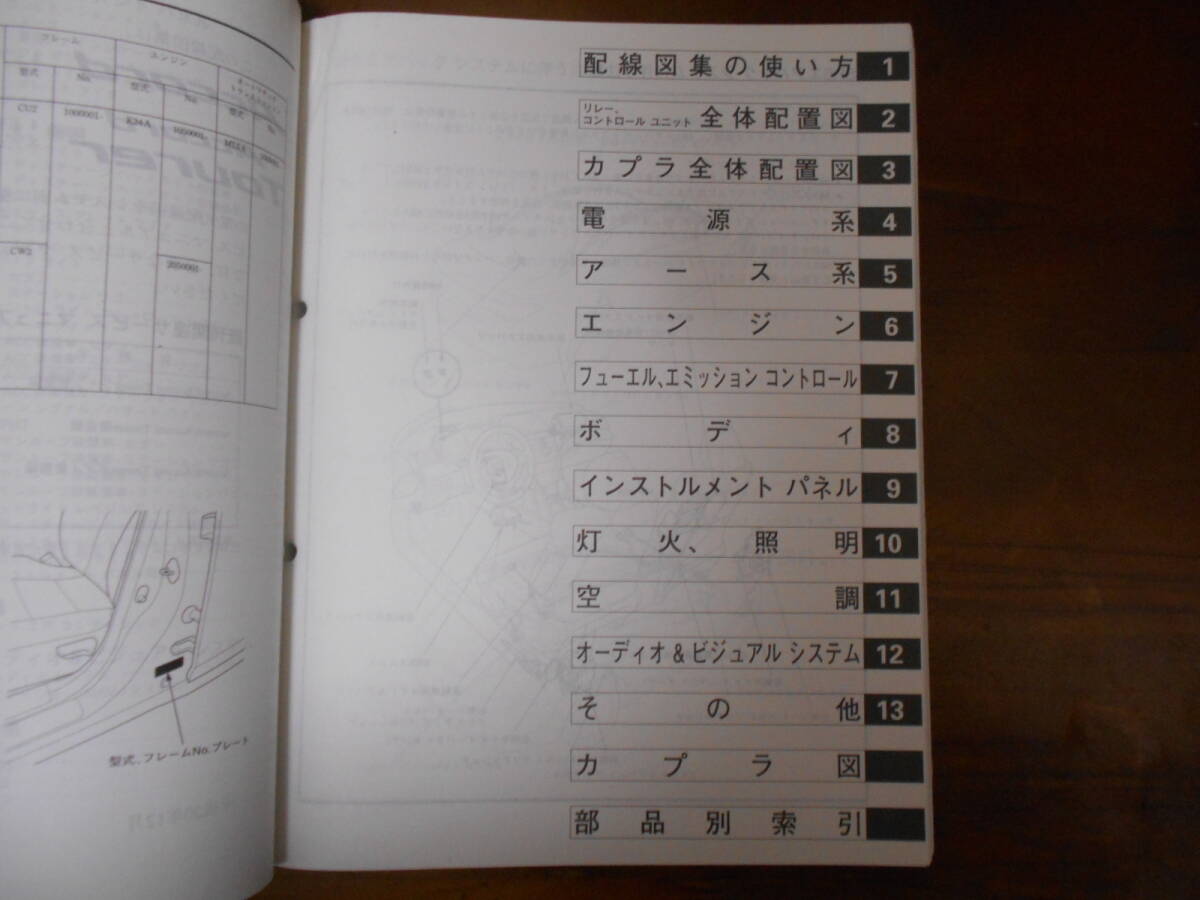 フレーム エンジン
型式 No. 型式 No. 型式
CU2 1000001- K24A 1050001-
CW2 2050001-
型式、フレームNo.プレート
配線図集の使い方 1
リレー、
コントロール ユニット 全体配置図 2
カプラ全体配置図 3
電源系 4
アース系 5
エンジン 6
フューエル、エミッション コントロール 7
ボディ 8
インストルメント パネル 9
灯火、照明 10
空調 11
オーディオ & ビジュアル システム 12
その他 13
カプラ図
部品別索引